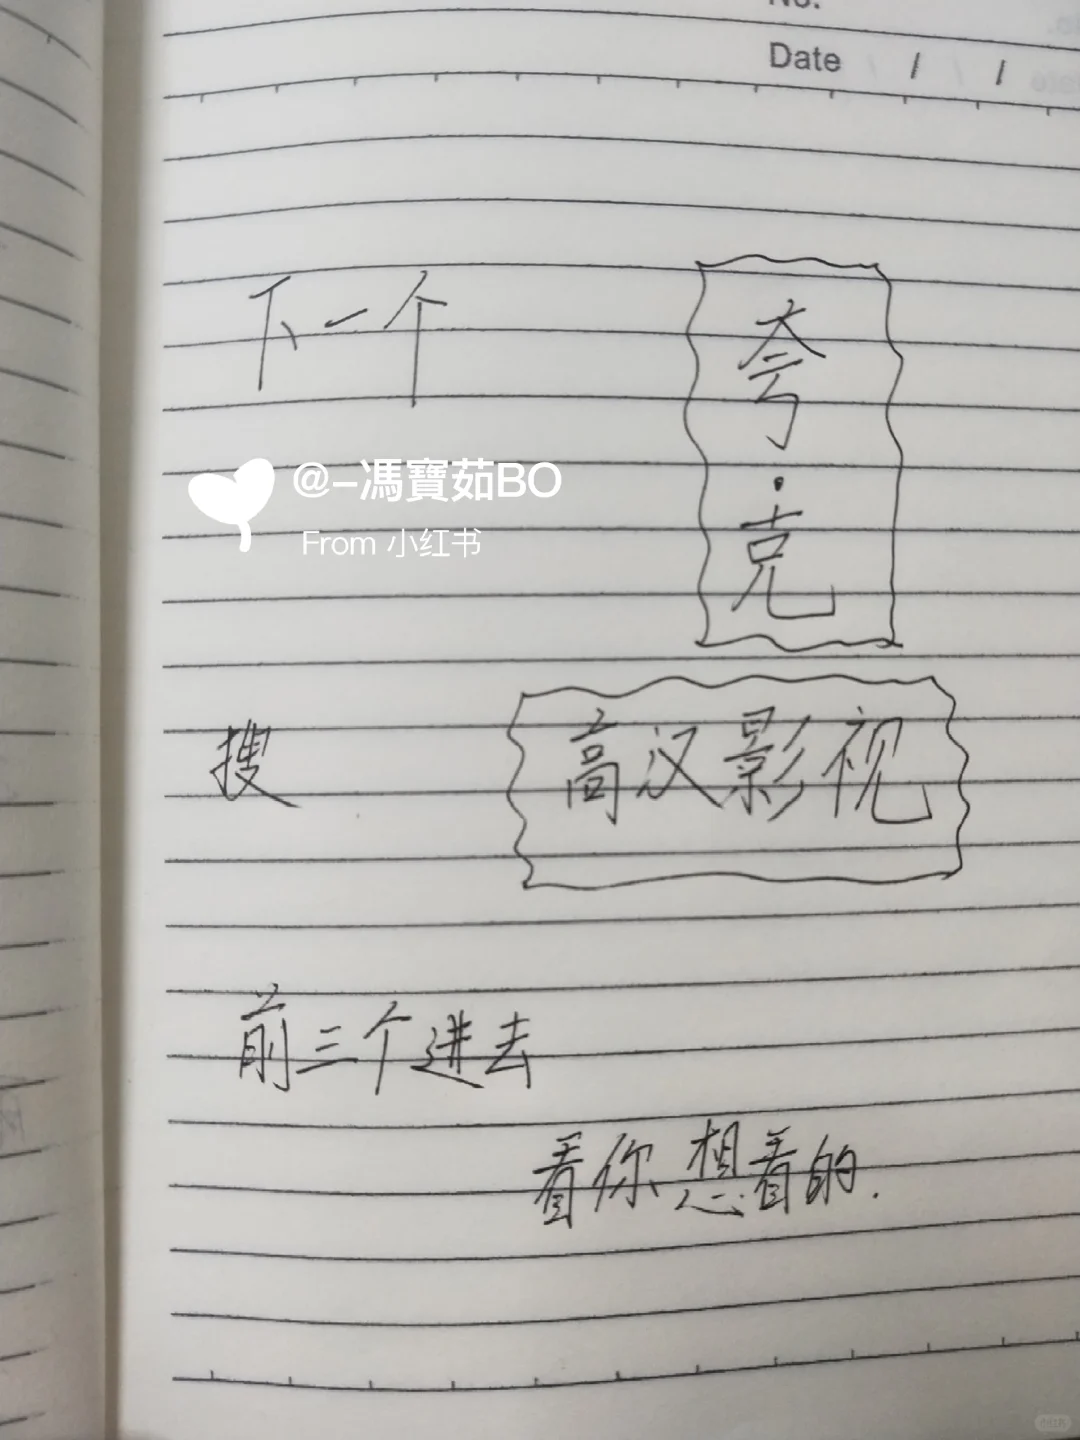 No.
Date / /
下一个
夸·克
@-馮寶茹BO
From 小红书
搜
高汉影视
前三个进去
看你想看的.